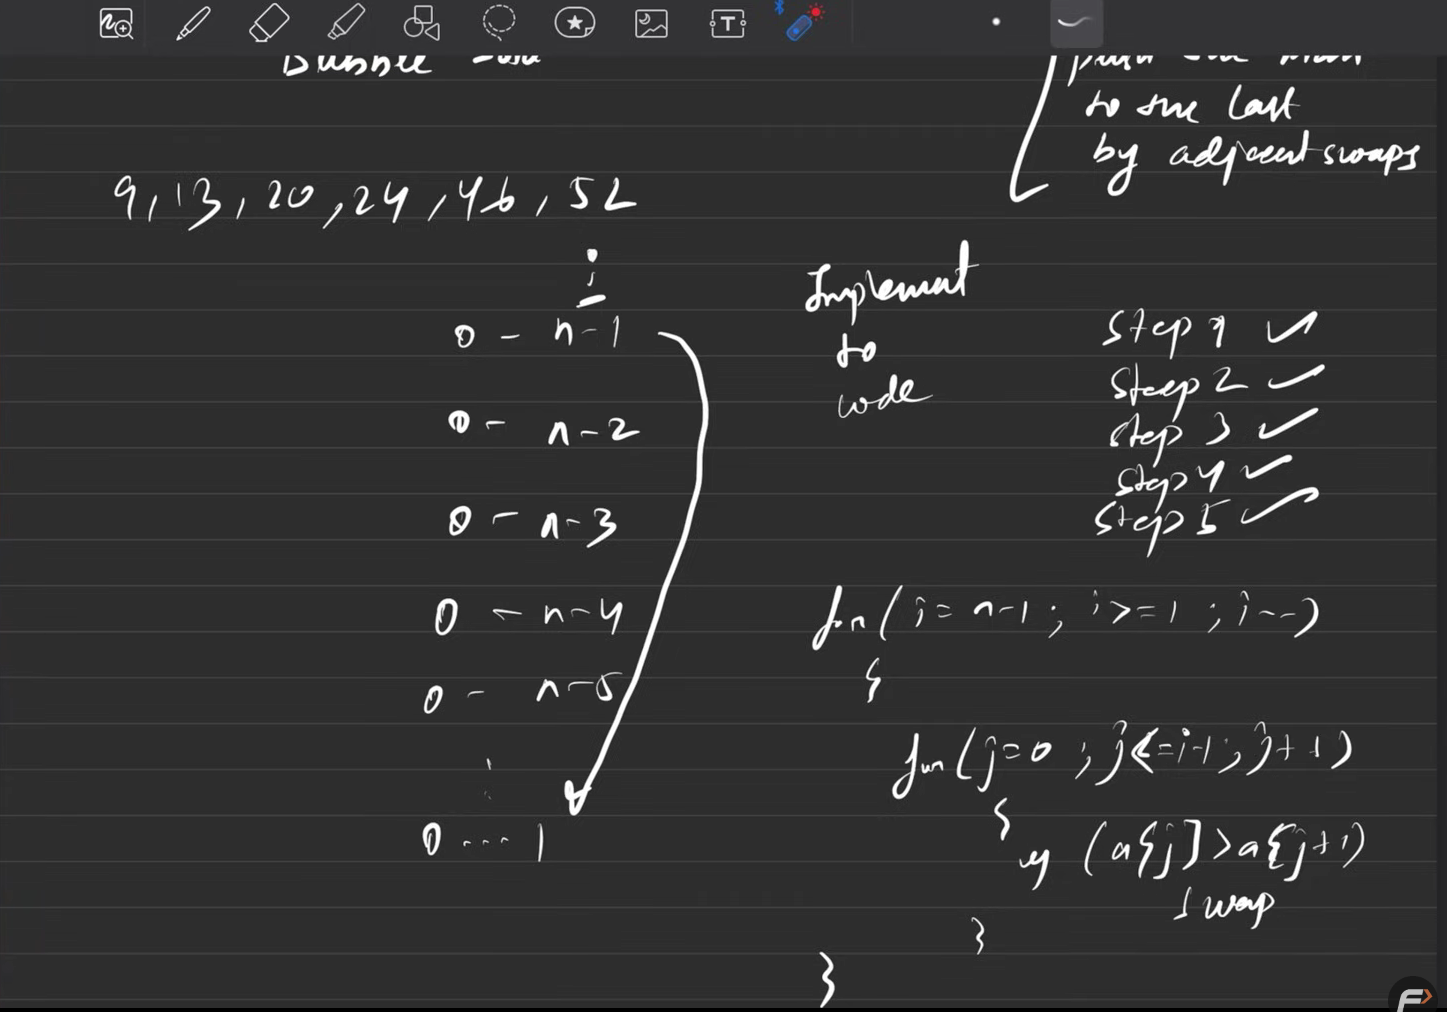 Bubble Sort
push the max
to the last
by adjacent swaps
9, 13, 20, 24, 46, 52
i
0 - n-1
0 - n-2
0 - n-3
0 - n-4
0 - n-5
0 ---- 1
Implement
to
code
Step 1 ✓
Steep 2 ✓
Step 3 ✓
Step 4 ✓
Step 5 ✓
for( i = n-1 ; i >= 1 ; i--)
{
for( j=0 ; j<=i-1 ; j++)
{
if (a[j] > a[j+1)
swap
}
}